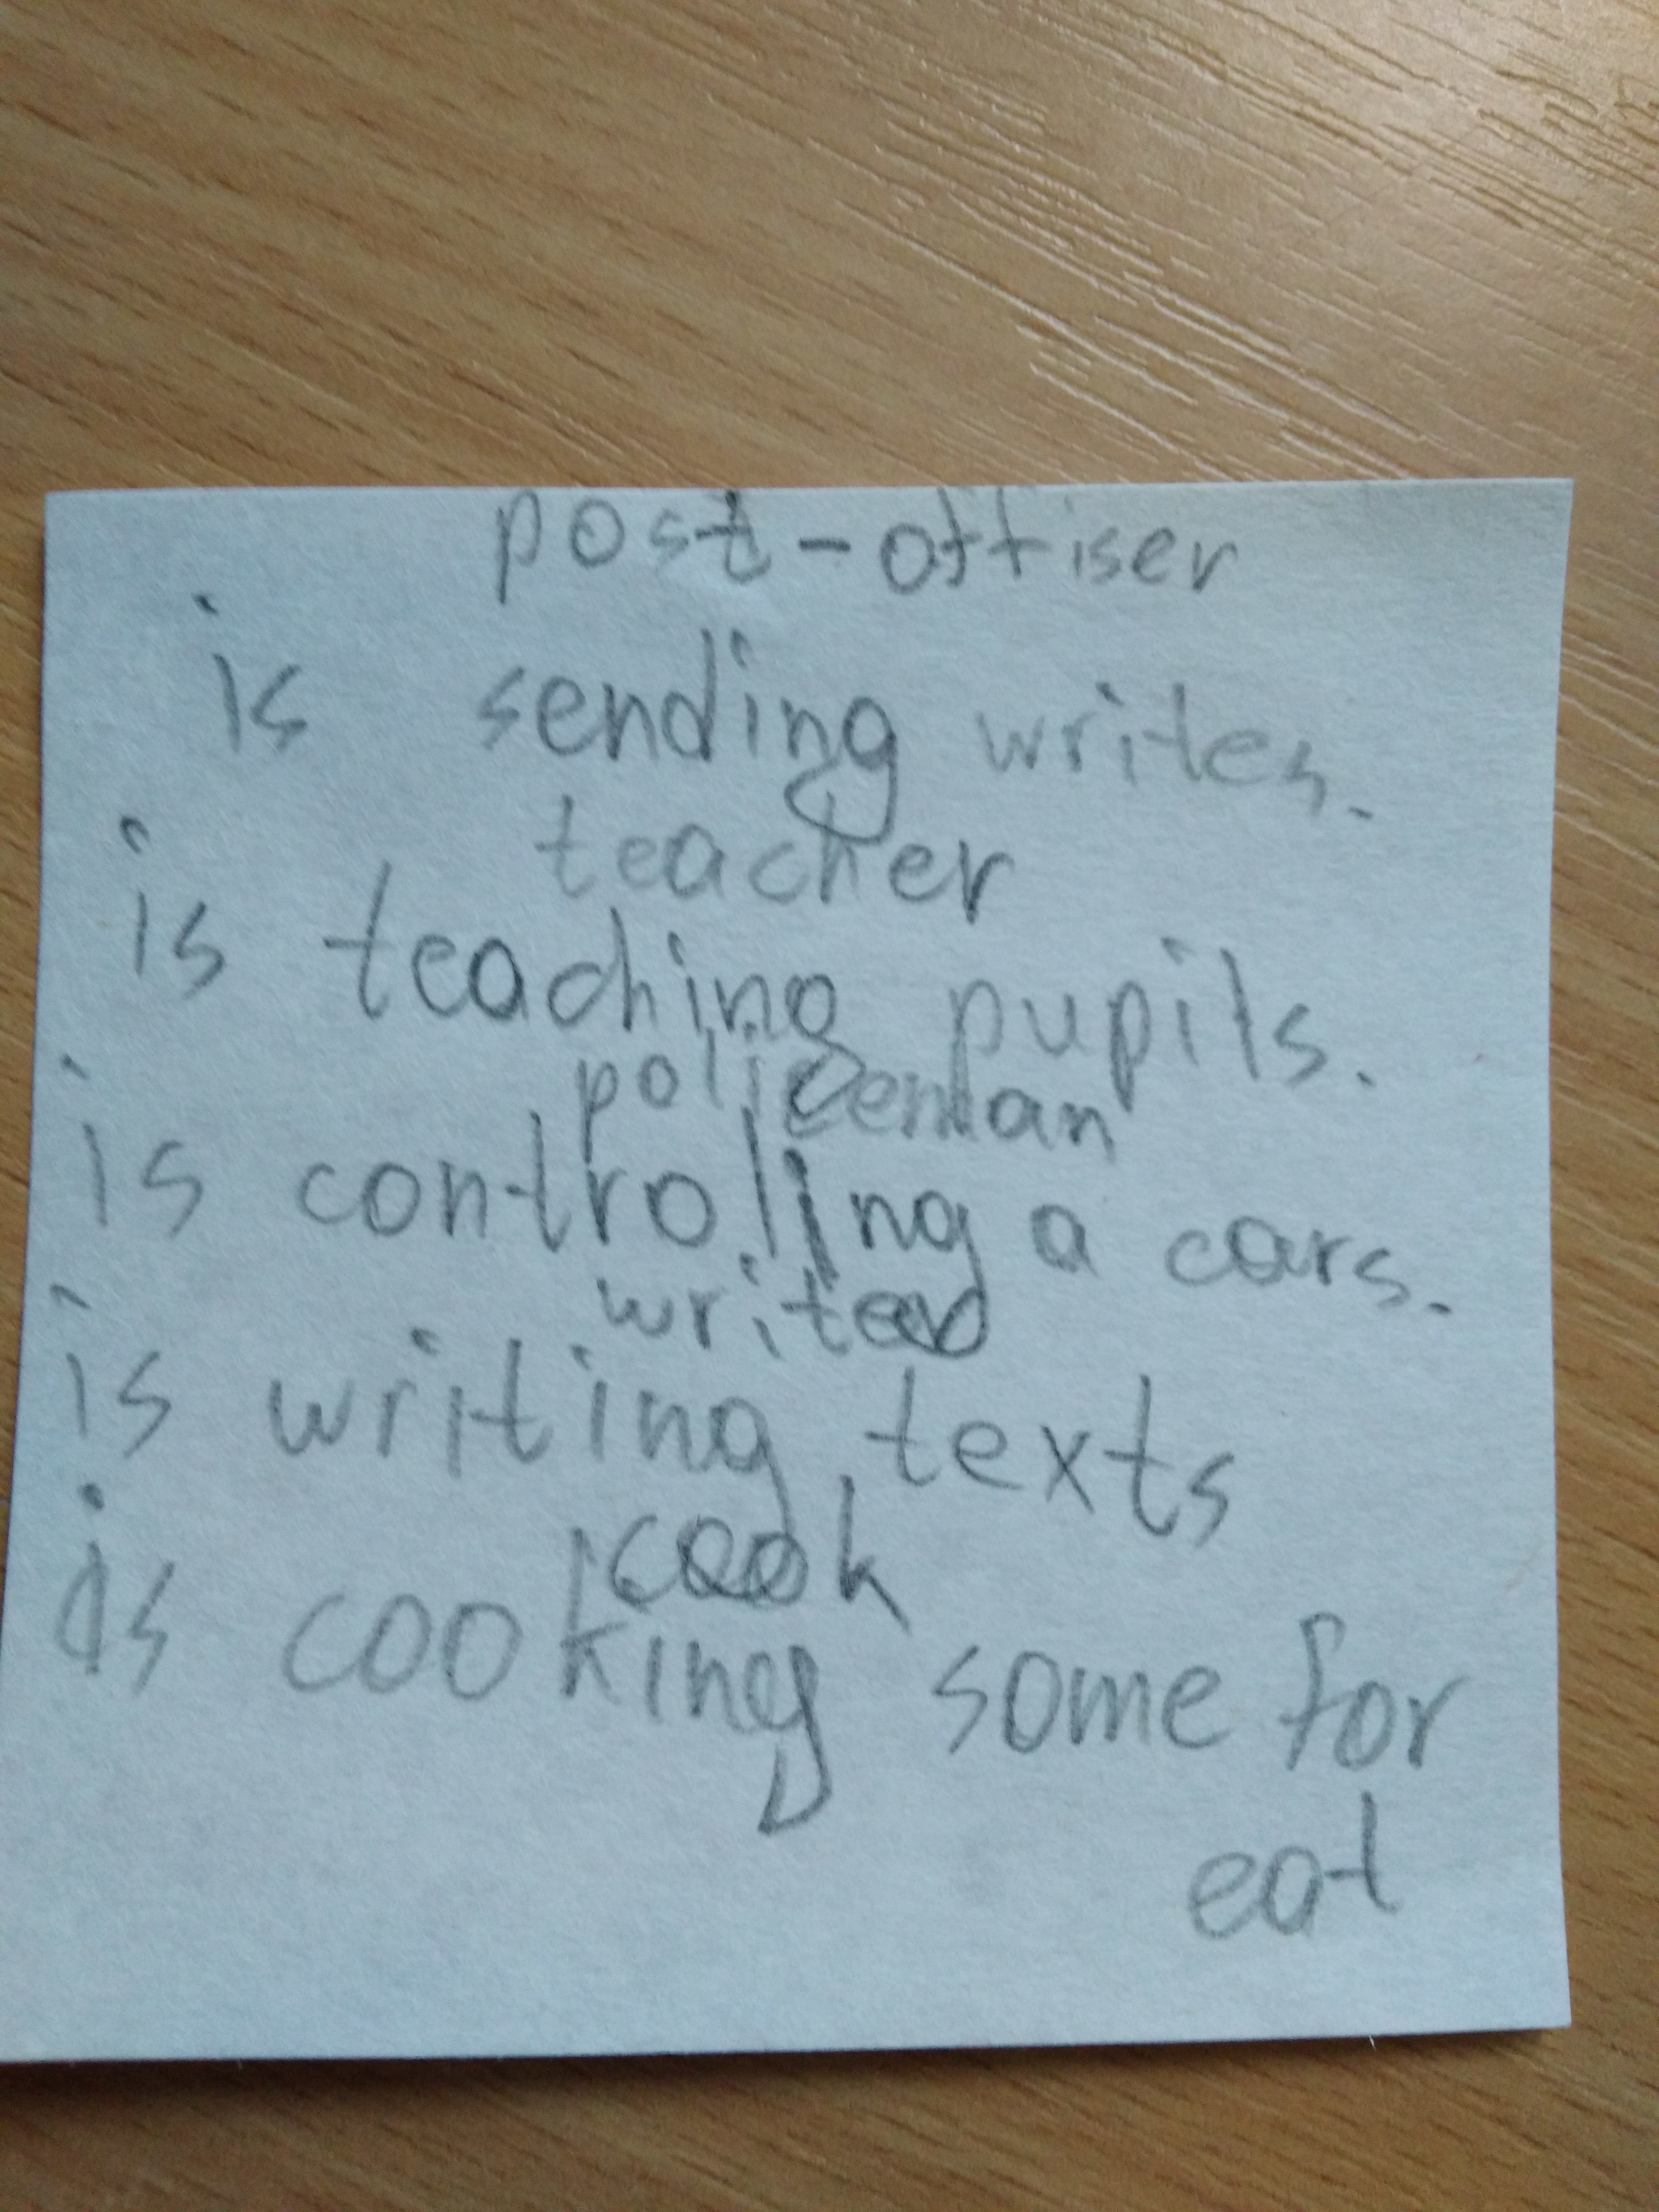 post-offiser
is sending writes.
teacher
is teaching pupils.
policeman
is controling a cars.
writer
is writing texts
cook
is cooking some for
eat